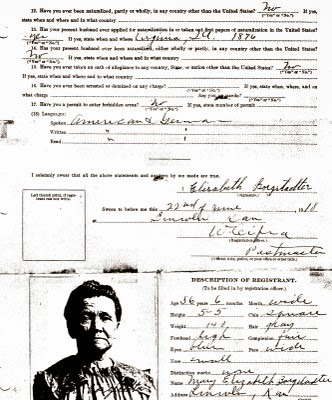 12. Have you ever been naturalized, partly or wholly, in any country other than the United States? No
("Yes" or "No.")
state when and where and in what country
13. Has your present husband ever applied for naturalization or taken out first papers of naturalization in the United States?
If yes, state when and where Virginia Ill. 1876
("Yes" or "No.")
14. Has your present husband ever been naturalized, either wholly or partly, in any country other than the United States?
No If yes, state when and where and in what country
("Yes" or "No.")
15. Have you ever taken an oath of allegiance to any country, State, or nation other than the United States? No
("Yes" or "No.")
If yes, state when and where and in what country
16. Have you ever been arrested or detained on any charge? If yes, state when and where and on
what charge Any parole?
("Yes" or "No.")
17. Have you a permit to enter forbidden areas? No If yes, state number of permit
("Yes" or "No.")
(18) Languages:
Spoken American & German
Written " "
Read " "
I solemnly swear that all the above statements and answers by me made are true.
Elizabeth Borgstadter
Left thumb print, if registrant can not write.
Sworn to before me this 22nd of June, 1918
Lincoln Kan
(Registration officer.)
Postmaster
(Official title, police or post-office or other title.)
DESCRIPTION OF REGISTRANT.
(To be filled in by registration officer.)
Age 56 years 6 months Mouth wide
Height 5-5 Chin square
Weight Hair gray
Forehead high Complexion fair
Eyes blue Face wide
Nose small
Distinctive marks none
Name Mary Elizabeth Borgstadter
Address Lincoln, Kan